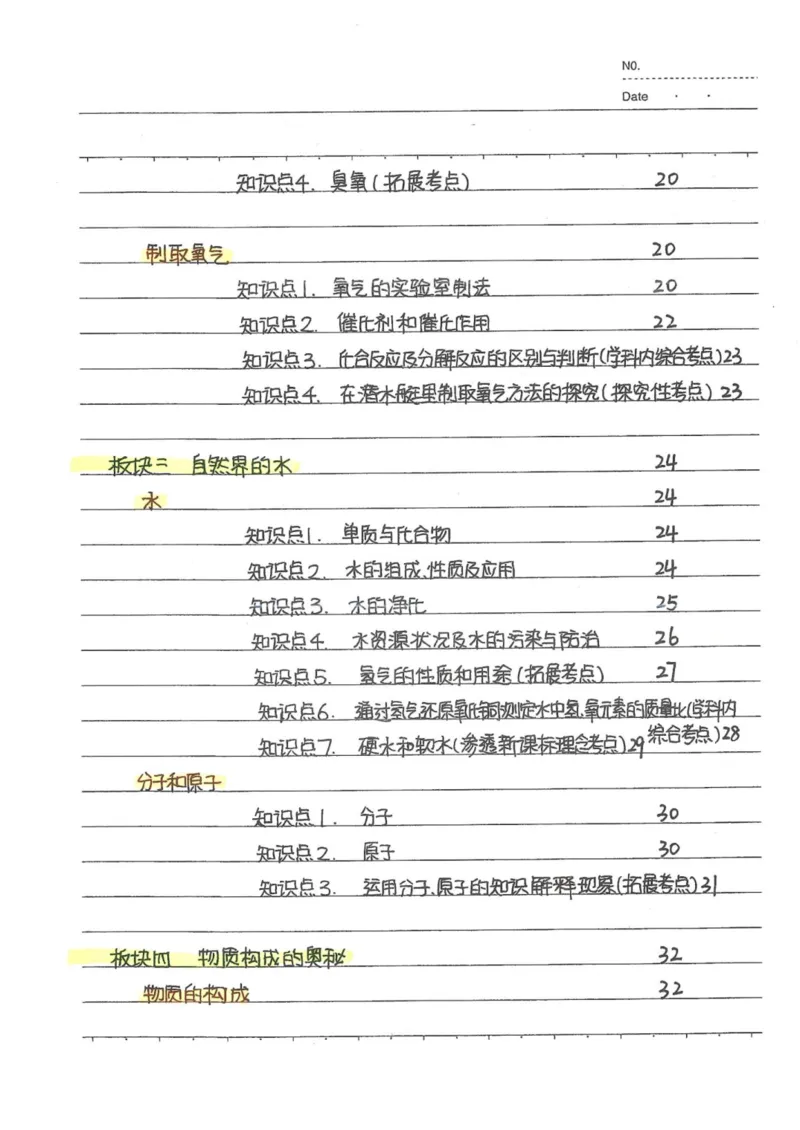 NO.
Date
知识点4. 臭氧(拓展考点) 20
制取氧气 20
知识点1. 氧气的实验室制法 20
知识点2. 催化剂和催化作用 22
知识点3. 化合反应及分解反应的区别与判断(学科内综合考点)23
知识点4. 在潜水艇里制取氧气方法的探究(探究性考点) 23
板块三 自然界的水 24
水 24
知识点1. 单质与化合物 24
知识点2. 水的组成、性质及应用 24
知识点3. 水的净化 25
知识点4. 水资源状况及水的污染与防治 26
知识点5. 氢气的性质和用途(拓展考点) 27
知识点6. 通过氢气还原氧化铜测定水中氢、氧元素的质量比(学科内
综合考点)28
知识点7. 硬水和软水(渗透新课标理念考点)29
分子和原子
知识点1. 分子 30
知识点2. 原子 30
知识点3. 运用分子、原子的知识解释现象(拓展考点)31
板块四 物质构成的奥秘 32
物质的构成 32